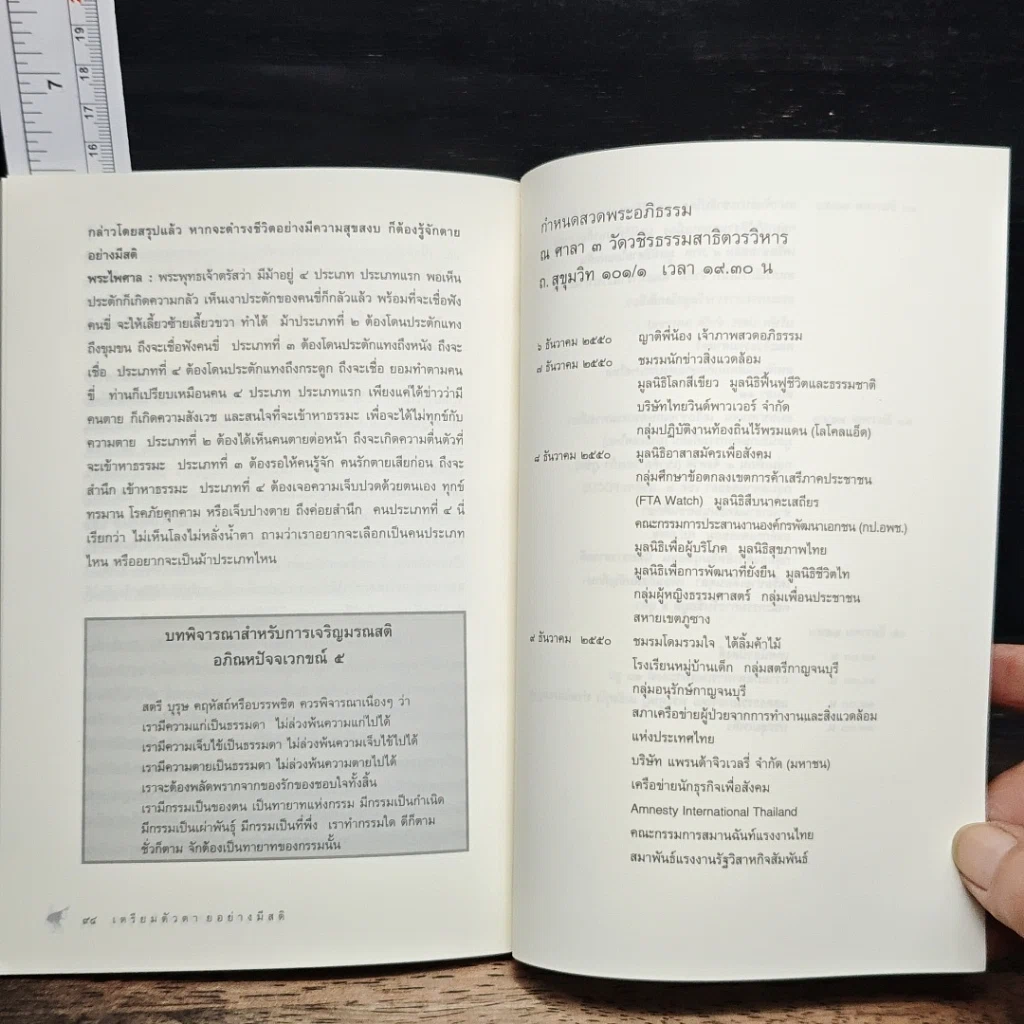 7
19
18
17
16
กล่าวโดยสรุปแล้ว หากจะดำรงชีวิตอย่างมีความสุขสงบ ก็ต้องรู้จักตาย
อย่างมีสติ
พระไพศาล : พระพุทธเจ้าตรัสว่า มีม้าอยู่ ๔ ประเภท ประเภทแรก พอเห็น
ประตักก็เกิดความกลัว เห็นเงาประตักของคนขี่ก็กลัวแล้ว พร้อมที่จะเชื่อฟัง
คนขี่ จะให้เลี้ยวซ้ายเลี้ยวขวา ทำได้ ม้าประเภทที่ ๒ ต้องโดนประตักแทง
ถึงขุมขน ถึงจะเชื่อฟังคนขี่ ประเภทที่ ๓ ต้องโดนประตักแทงถึงหนัง ถึงจะ
เชื่อ ประเภทที่ ๔ ต้องโดนประตักแทงถึงกระดูก ถึงจะเชื่อ ยอมทำตามคน
ขี่ ท่านก็เปรียบเหมือนคน ๔ ประเภท ประเภทแรก เพียงแค่ได้ข่าวว่ามี
คนตาย ก็เกิดความสังเวช และสนใจที่จะเข้าหาธรรมะ เพื่อจะได้ไม่ทุกข์กับ
ความตาย ประเภทที่ ๒ ต้องได้เห็นคนตายต่อหน้า ถึงจะเกิดความตื่นตัวที่
จะเข้าหาธรรมะ ประเภทที่ ๓ ต้องรอให้คนรู้จัก คนรักตายเสียก่อน ถึงจะ
สำนึก เข้าหาธรรมะ ประเภทที่ ๔ ต้องเจอความเจ็บปวดด้วยตนเอง ทุกข์
ทรมาน โรคภัยคุกคาม หรือเจ็บปางตาย ถึงค่อยสำนึก คนประเภทที่ ๔ นี่
เรียกว่า ไม่เห็นโลงไม่หลั่งน้ำตา ถามว่าเราอยากจะเลือกเป็นคนประเภท
ไหน หรืออยากจะเป็นม้าประเภทไหน
บทพิจารณาสำหรับการเจริญมรณสติ
อภิณหปัจจเวกขณ์ ๕
สตรี บุรุษ คฤหัสถ์หรือบรรพชิต ควรพิจารณาเนืองๆ ว่า
เรามีความแก่เป็นธรรมดา ไม่ล่วงพ้นความแก่ไปได้
เรามีความเจ็บไข้เป็นธรรมดา ไม่ล่วงพ้นความเจ็บไข้ไปได้
เรามีความตายเป็นธรรมดา ไม่ล่วงพ้นความตายไปได้
เราจะต้องพลัดพรากจากของรักของชอบใจทั้งสิ้น
เรามีกรรมเป็นของตน เป็นทายาทแห่งกรรม มีกรรมเป็นกำเนิด
มีกรรมเป็นเผ่าพันธุ์ มีกรรมเป็นที่พึ่ง เราทำกรรมใด ดีก็ตาม
ชั่วก็ตาม จักต้องเป็นทายาทของกรรมนั้น
๙๔ เตรียมตัวตายอย่างมีสติ
กำหนดสวดพระอภิธรรม
ณ ศาลา ๓ วัดวชิรธรรมสาธิตวรวิหาร
ถ. สุขุมวิท ๑๐๑/๑ เวลา ๑๙.๓๐ น
๖ ธันวาคม ๒๕๕๐ ญาติพี่น้อง เจ้าภาพสวดอภิธรรม
๗ ธันวาคม ๒๕๕๐ ชมรมนักข่าวสิ่งแวดล้อม
มูลนิธิโลกสีเขียว มูลนิธิฟื้นฟูชีวิตและธรรมชาติ
บริษัทไทยวินด์พาวเวอร์ จำกัด
กลุ่มปฏิบัติงานท้องถิ่นไร้พรมแดน (โลโคลแอ็ค)
๘ ธันวาคม ๒๕๕๐ มูลนิธิอาสาสมัครเพื่อสังคม
กลุ่มศึกษาข้อตกลงเขตการค้าเสรีภาคประชาชน
(FTA Watch) มูลนิธิสืบนาคะเสถียร
คณะกรรมการประสานงานองค์กรพัฒนาเอกชน (กป.อพช.)
มูลนิธิเพื่อผู้บริโภค มูลนิธิสุขภาพไทย
มูลนิธิเพื่อการพัฒนาที่ยั่งยืน มูลนิธิชีวิตไท
กลุ่มผู้หญิงธรรมศาสตร์ กลุ่มเพื่อนประชาชน
สหายเขตภูซาง
๙ ธันวาคม ๒๕๕๐ ชมรมโดมรวมใจ ใต้ลิ้มค้าไม้
โรงเรียนหมู่บ้านเด็ก กลุ่มสตรีกาญจนบุรี
กลุ่มอนุรักษ์กาญจนบุรี
สภาเครือข่ายผู้ป่วยจากการทำงานและสิ่งแวดล้อม
แห่งประเทศไทย
บริษัท แพรนด้าจิวเวลรี่ จำกัด (มหาชน)
เครือข่ายนักธุรกิจเพื่อสังคม
Amnesty International Thailand
คณะกรรมการสมานฉันท์แรงงานไทย
สมาพันธ์แรงงานรัฐวิสาหกิจสัมพันธ์